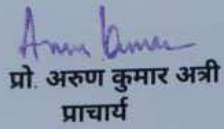 Arun Kumar
प्रो. अरुण कुमार अत्री
प्राचार्य